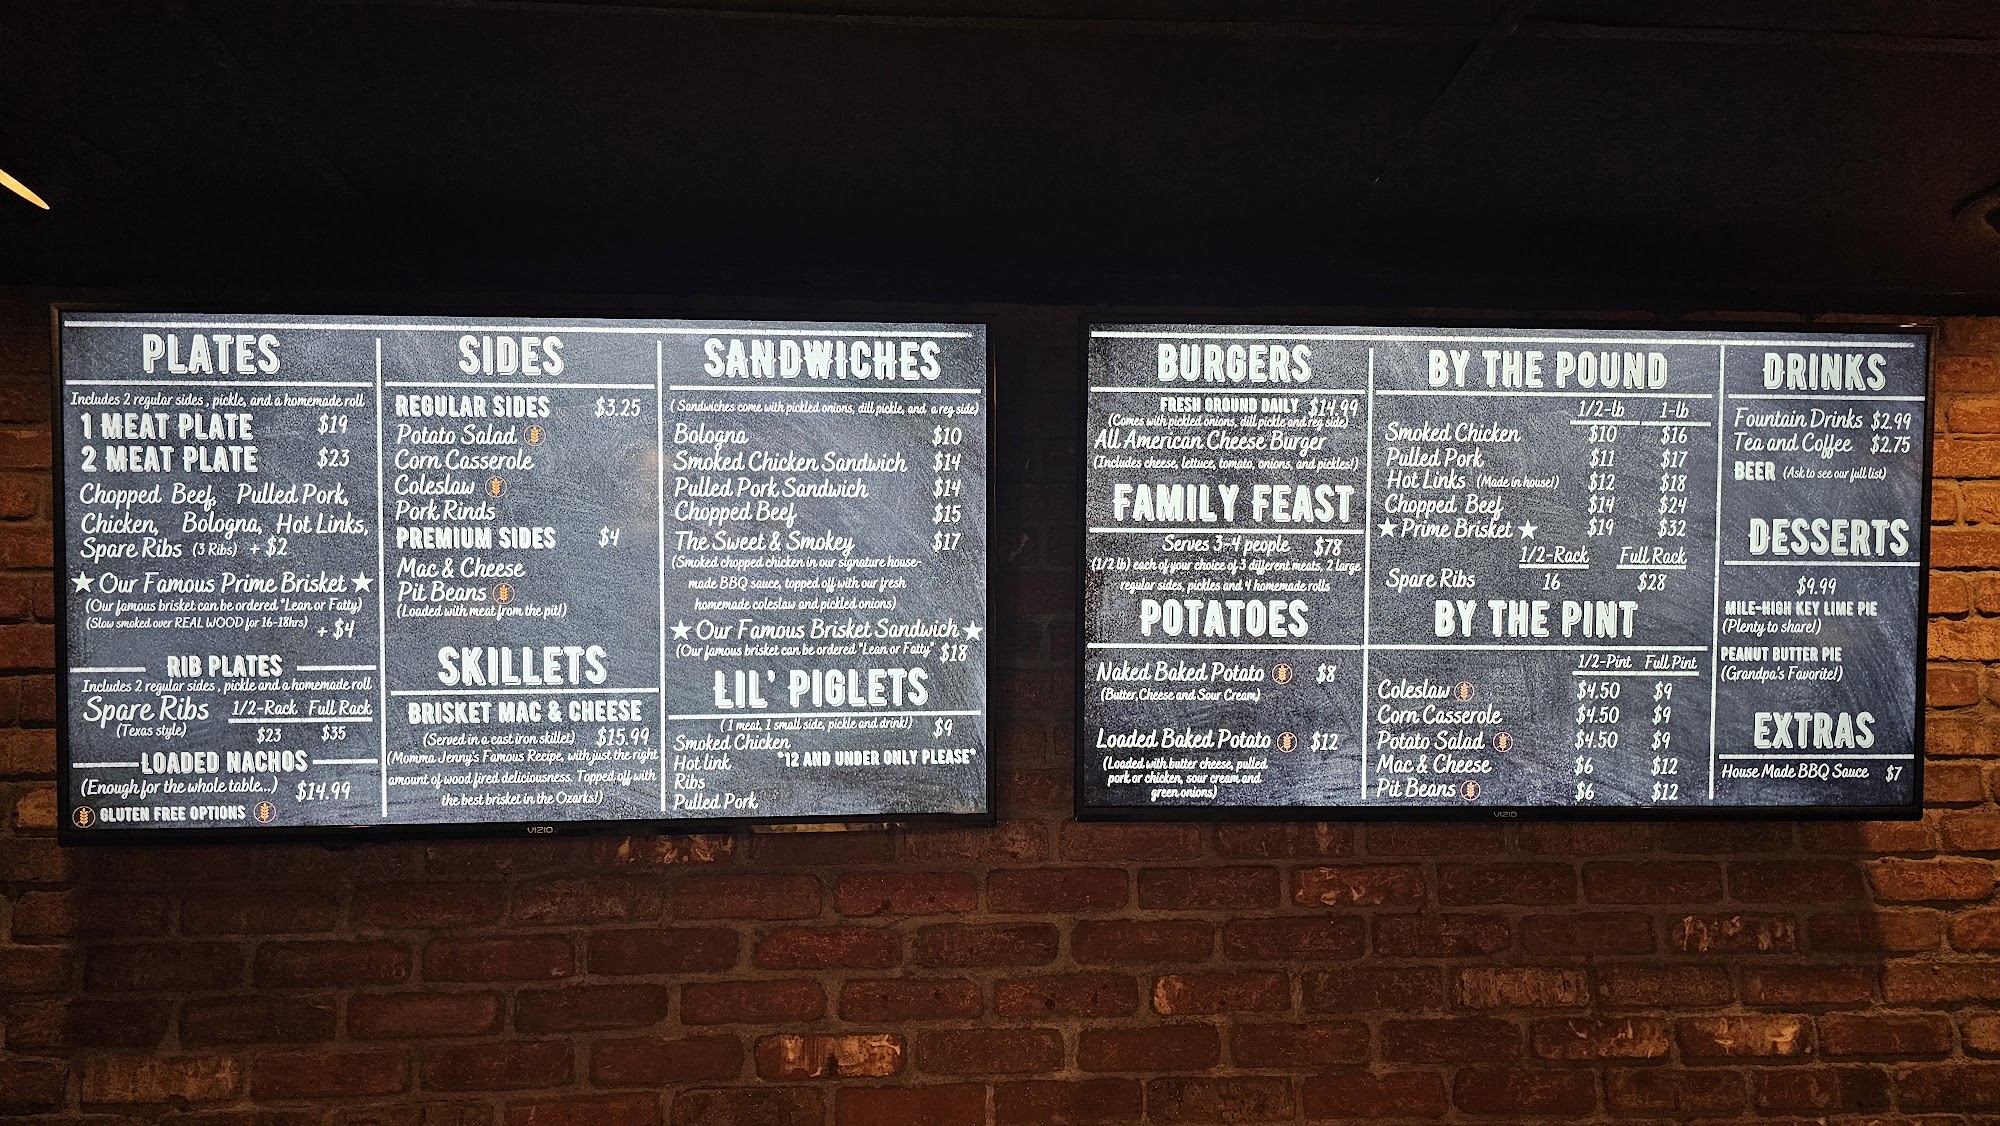 PLATES
Includes 2 regular sides, pickle, and a homemade roll
1 MEAT PLATE $19
2 MEAT PLATE $23
Chopped Beef, Pulled Pork,
Chicken, Bologna, Hot Links,
Spare Ribs (3 Ribs) + $2
★ Our Famous Prime Brisket ★
(Our famous brisket can be ordered "Lean or Fatty)
(Slow smoked over REAL WOOD for 16-18hrs) + $4
RIB PLATES
Includes 2 regular sides, pickle and a homemade roll
Spare Ribs 1/2-Rack Full Rack
(Texas style) $23 $35
LOADED NACHOS
(Enough for the whole table...) $14.99
GLUTEN FREE OPTIONS
SIDES
REGULAR SIDES $3.25
Potato Salad
Corn Casserole
Coleslaw
Pork Rinds
PREMIUM SIDES $4
Mac & Cheese
Pit Beans
(Loaded with meat from the pit!)
SKILLETS
BRISKET MAC & CHEESE
(Served in a cast iron skillet) $15.99
(Momma Jenny's Famous Recipe, with just the right
amount of wood fired deliciousness. Topped off with
the best brisket in the Ozarks!)
SANDWICHES
(Sandwiches come with pickled onions, dill pickle, and a reg side)
Bologna $10
Smoked Chicken Sandwich $14
Pulled Pork Sandwich $14
Chopped Beef $15
The Sweet & Smokey $17
(Smoked chopped chicken in our signature house-
made BBQ sauce, topped off with our fresh
homemade coleslaw and pickled onions)
★ Our Famous Brisket Sandwich ★
(Our famous brisket can be ordered "Lean or Fatty" $18
LIL' PIGLETS
(1 meat, 1 small side, pickle and drink!) $9
Smoked Chicken
Hot link *12 AND UNDER ONLY PLEASE*
Ribs
Pulled Pork
VIZIO
BURGERS
FRESH GROUND DAILY $14.99
(Comes with pickled onions, dill pickle and reg side)
All American Cheese Burger
(Includes cheese, lettuce, tomato, onions, and pickles!)
FAMILY FEAST
Serves 3-4 people $78
(1/2 lb) each of your choice of 3 different meats, 2 large
regular sides, pickles and 4 homemade rolls
POTATOES
Naked Baked Potato $8
(Butter, Cheese and Sour Cream)
Loaded Baked Potato $12
(Loaded with butter cheese, pulled
pork or chicken, sour cream and
green onions)
BY THE POUND
1/2-lb 1-lb
Smoked Chicken $10 $16
Pulled Pork $11 $17
Hot Links (Made in house!) $12 $18
Chopped Beef $14 $24
★ Prime Brisket ★ $19 $32
1/2-Rack Full Rack
Spare Ribs 16 $28
BY THE PINT
1/2-Pint Full Pint
Coleslaw $4.50 $9
Corn Casserole $4.50 $9
Potato Salad $4.50 $9
Mac & Cheese $6 $12
Pit Beans $6 $12
DRINKS
Fountain Drinks $2.99
Tea and Coffee $2.75
BEER (Ask to see our full list)
DESSERTS
$9.99
MILE-HIGH KEY LIME PIE
(Plenty to share!)
PEANUT BUTTER PIE
(Grandpa's Favorite!)
EXTRAS
House Made BBQ Sauce $7
VIZIO